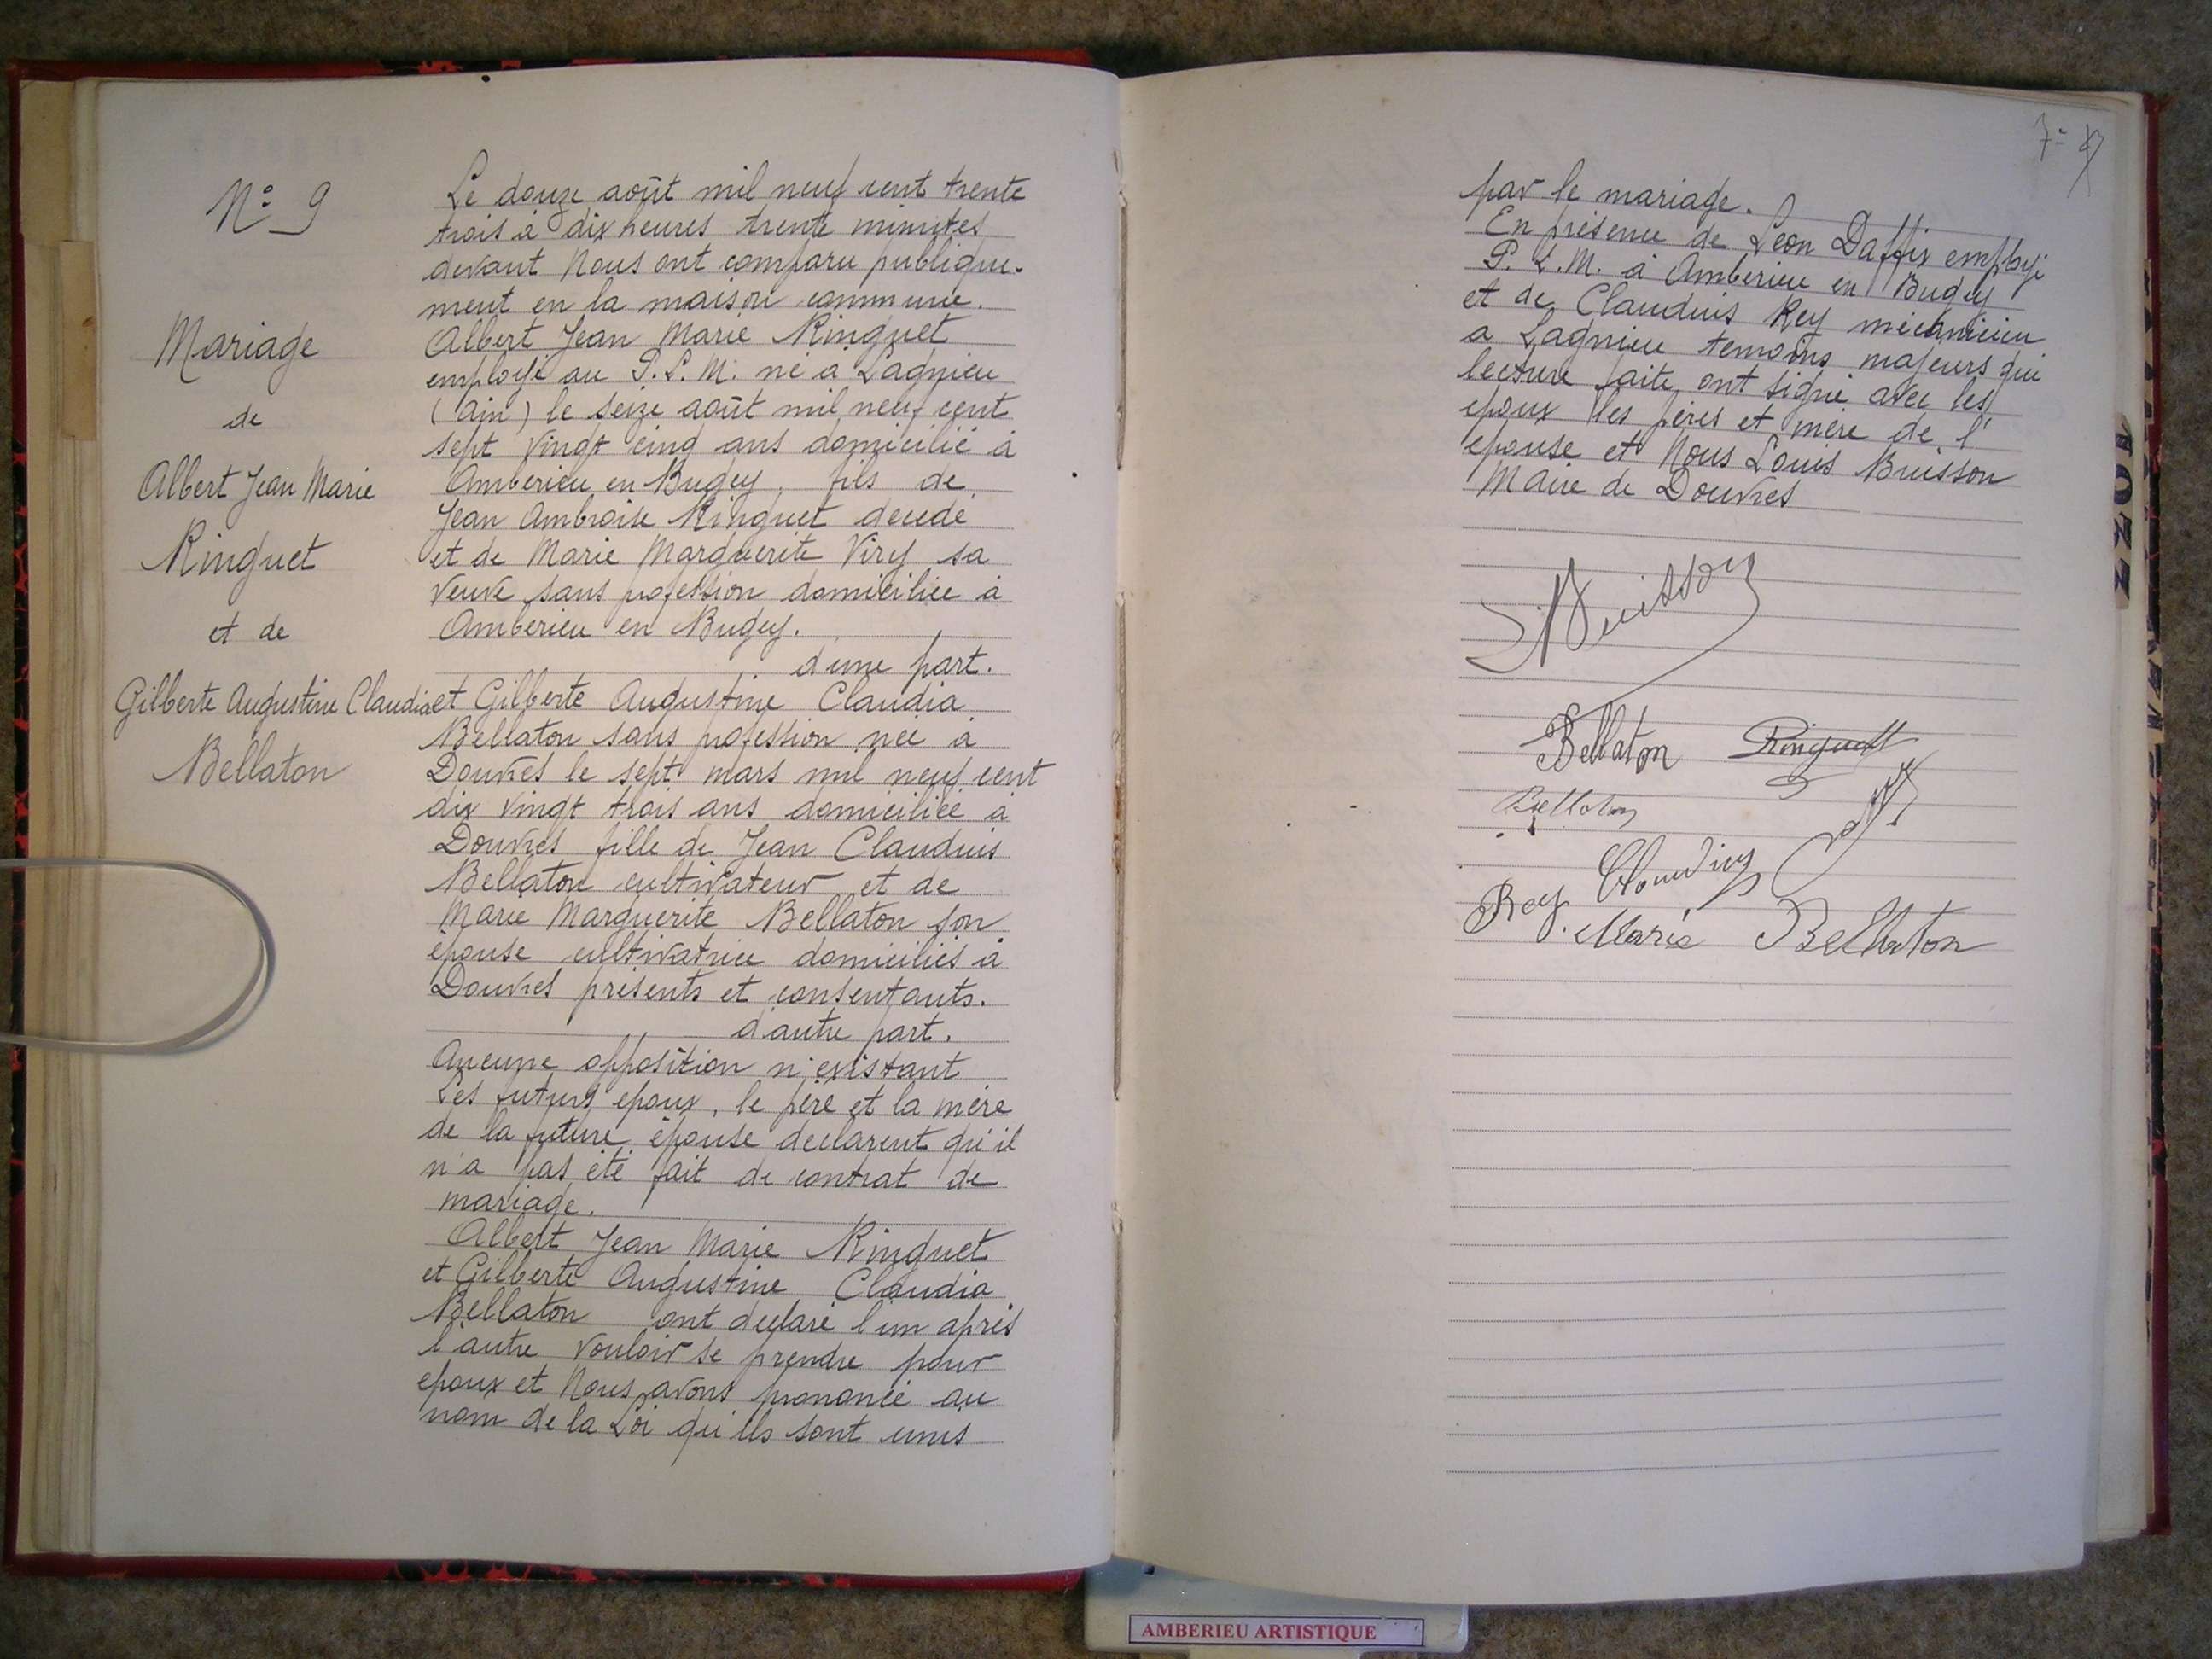 N° 9
Mariage
de
Albert Jean Marie
Ringuet
et de
Gilberte Augustine Claudia
Bellaton
Le douze août mil neuf cent trente
trois à dix heures trente minutes
devant Nous ont comparu publique-
ment en la maison commune.
Albert Jean Marie Ringuet
employé au P.L.M. né a Lagnieu
(Ain) le seize août mil neuf cent
sept vingt cinq ans domicilié à
Amberieu en Bugey, fils de
Jean Ambroise Ringuet decedé
et de Marie Marguerite Viry sa
veuve sans profession domiciliée à
Amberieu en Bugey.
d'une part.
et Gilberte Augustine Claudia
Bellaton sans profession née a
Douvres le sept mars mil neuf cent
dix vingt trois ans domiciliée à
Douvres fille de Jean Claudius
Bellaton cultivateur et de
Marie Marguerite Bellaton son
épouse cultivatrice domiciliés à
Douvres présents et consentants.
d'autre part.
Aucune opposition n'existant
Les futurs epoux, le père et la mère
de la future épouse declarent qu'il
n'a pas été fait de contrat de
mariage.
Albert Jean Marie Ringuet
et Gilberte Augustine Claudia
Bellaton ont declaré l'un après
l'autre vouloir se prendre pour
epoux et Nous avons prononcé au
nom de la Loi qu'ils sont unis
par le mariage.
En présence de Léon Daffix employé
P.L.M. à Amberieu en Bugey
et de Claudius Rey mécanicien
a Lagnieu temoins majeurs qui
lecture faite ont signé avec les
epoux les pères et mère de l'
epouse et Nous Louis Buisson
Maire de Douvres
Buisson
Bellaton Ringuet
Bellaton
Rey Claudius
Marie Bellaton
AMBERIEU ARTISTIQUE